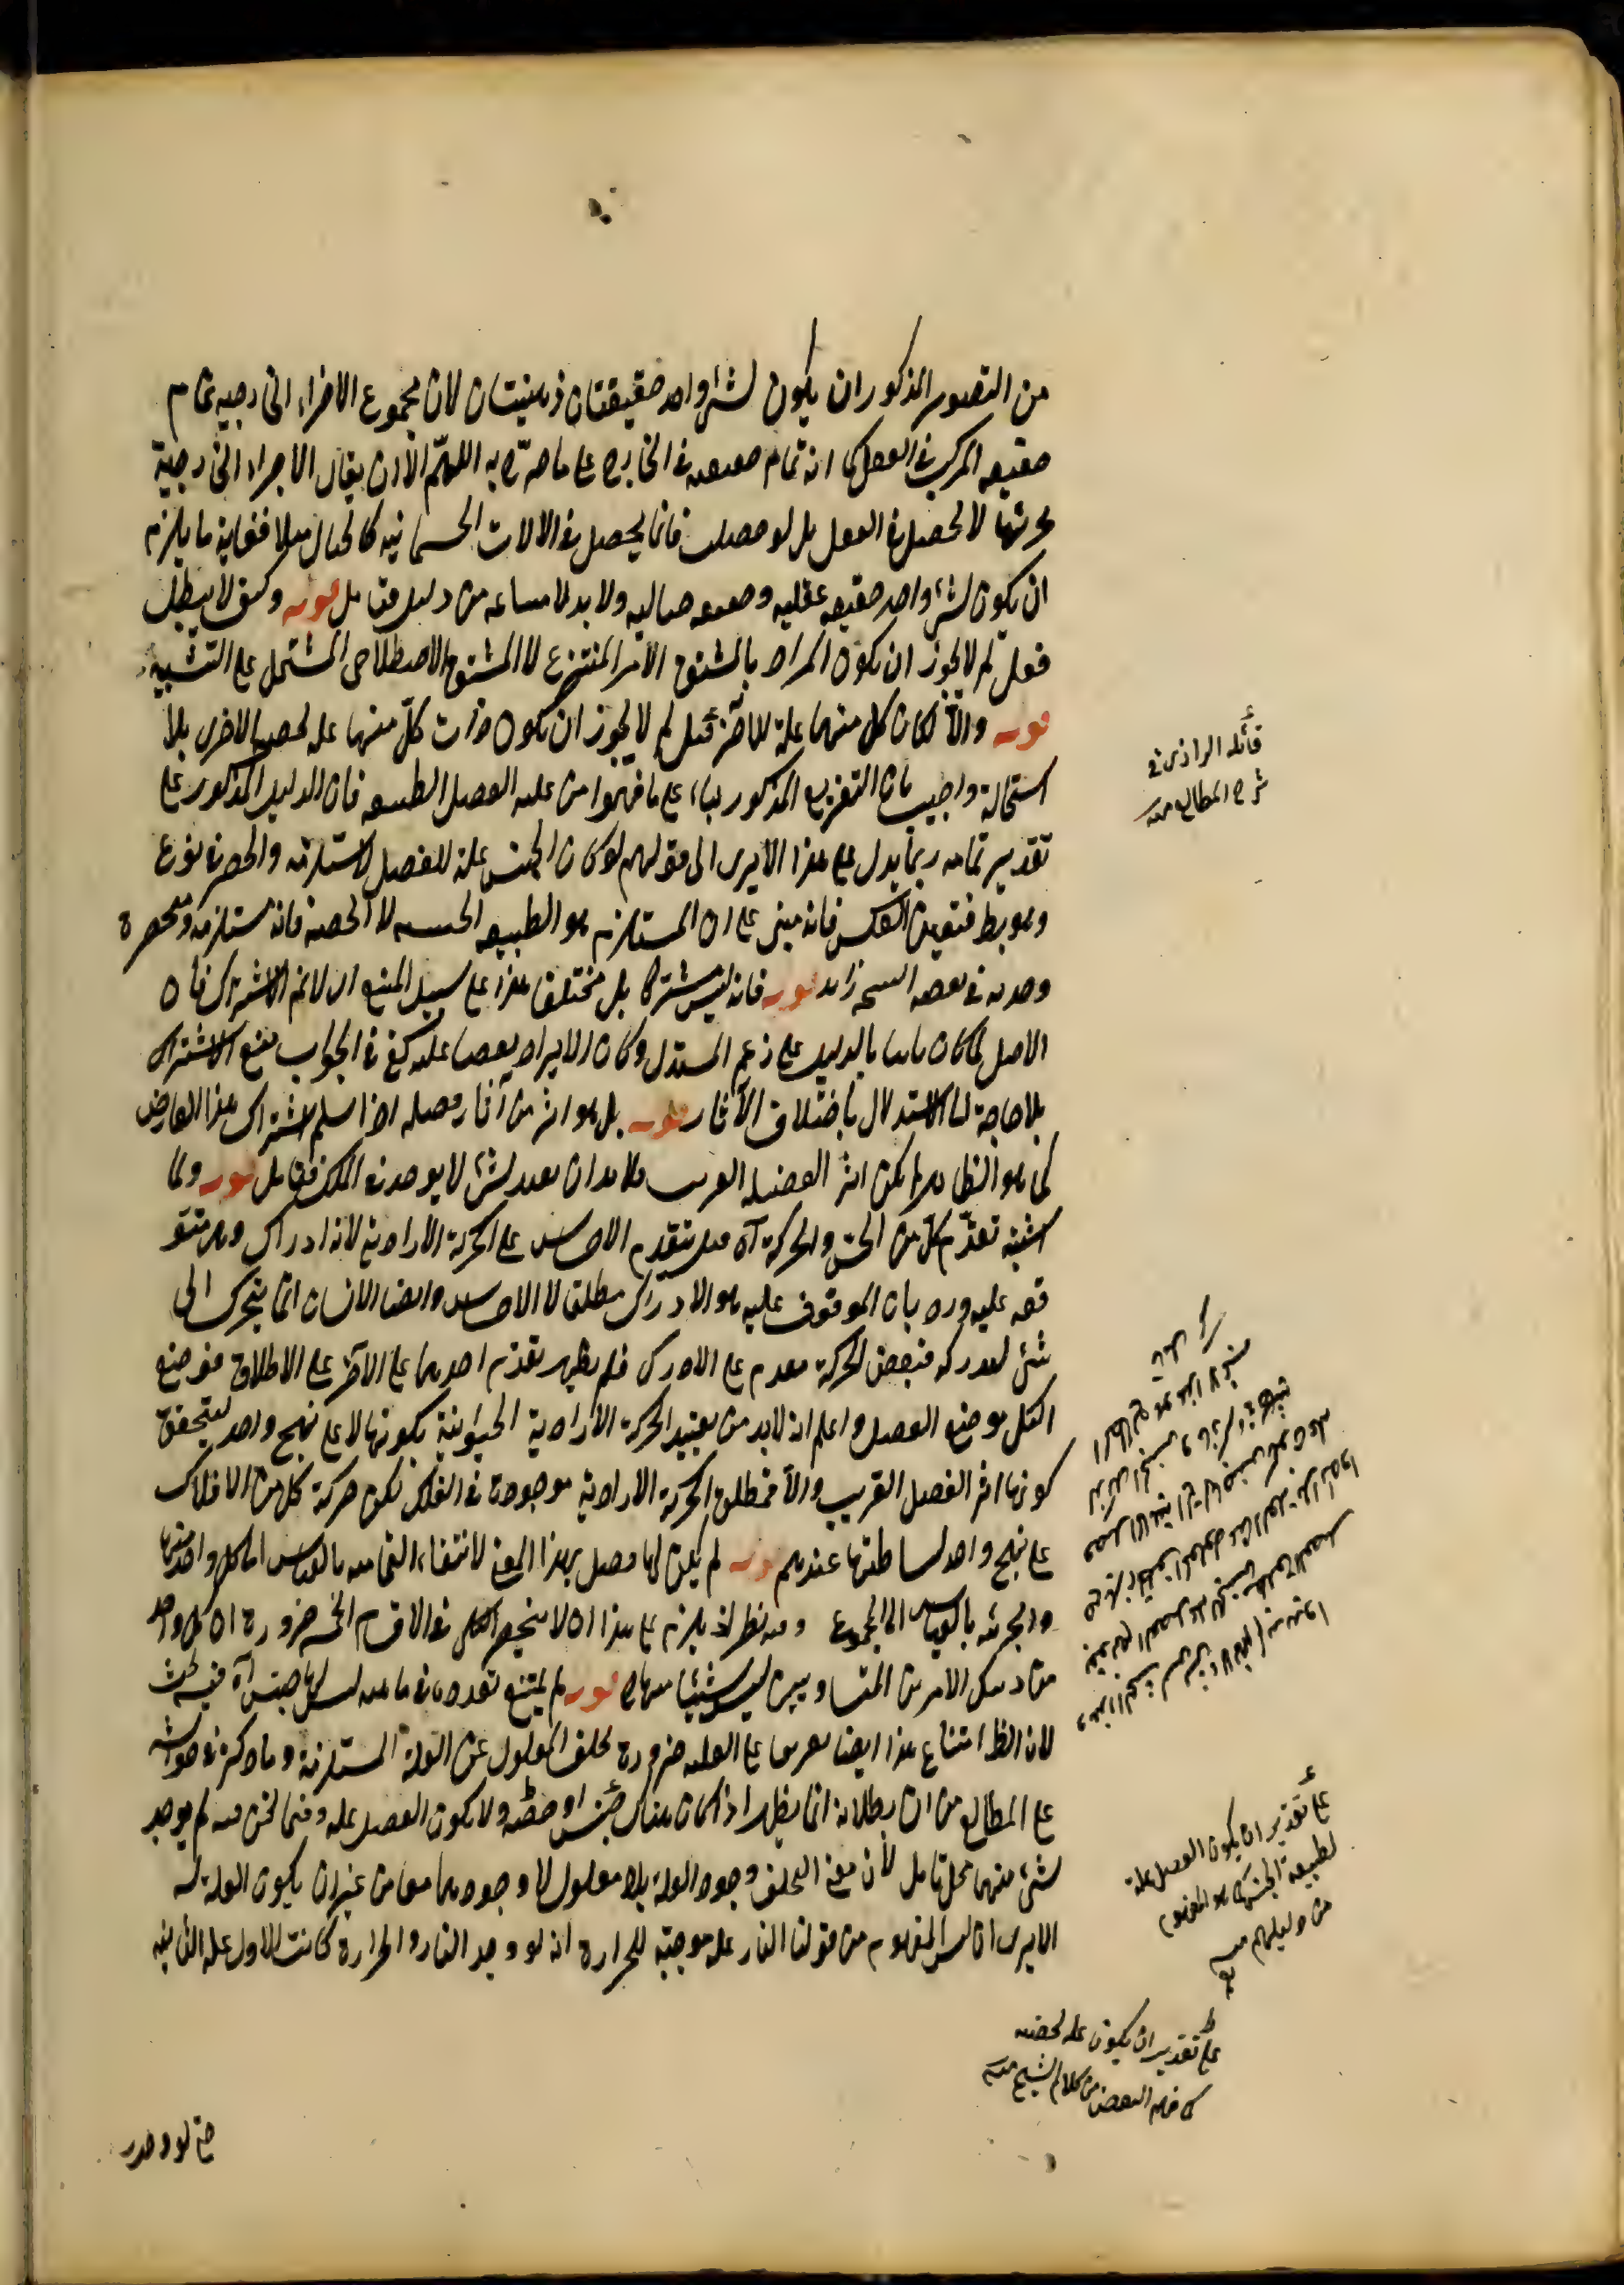 من التصور المذكور ان يكون لشئ واحد حقيقتان ذهنيتان لان مجموع الاجزاء الخارجيه تمام
حقيقه المركب فى العقل كما انه تمام حقيقته فى الخارج على ما صرّح به اللهمّ الا ان يقال الاجزاء الخارجية
لا تحصل فى العقل بل لو حصلت فانما يحصل فى الالات الجسمانيه كالخيال مثلا فغاية ما يلزم
ان يكون لشئ واحد حقيقه عقليه وحقيقه خياليه ولا بد لامتناعه من دليل فتامل قوله لا يبطل
فعل لم لا يجوز ان يكون المراد بالمشتق الامر المنتزع لا المشتق الاصطلاحى المشتمل على النسبة
قوله والّا لكان كل منهما علة للآخر قيل لم لا يجوز ان يكون ذات كلّ منهما علة لحصة الاخرى بلا
استحالة واجيب بان التفريع المذكور بناء على ما فهموا من علية الفصل لطبيعة فان الدليل المذكور على
تقدير تمامه ربما يدل على هذا الا يرى الى قولهم لو كان الجنس علة للفصل لاستلزمه وانحصر فى نوع
وهو بط فتعين العكس فانه مبنى على ان المستلزم هو الطبيعه الجنسيه لا الحصة فانه مستلزمة ومنحصرة
وحديه فى بعض النسخ زايد قوله فانه ليس مشتركا بل مختلف هذا على سبيل المنع اى لا نم الاشتراك فان
الاصل لما كان ثابتا بالدليل على زعم المستدل وكان الايراد نقضا عليه كفى فى الجواب منع الاشتراك
بلا حاجة الى الاستدلال باختلاف الآثار قوله بل هو اثر من آثار فصله اذا سلم اشتراك هذا العارض
كما هو الظ ولم يكن اثر الفصل القريب فلا بد ان يقيد بشئ لا يوجد فى الملك فتامل قوله ولما
اشتبه تقدّم كلّ من الحسّ والحركة آه قيل يتقدم الاحساس على الحركة الارادية لانه ادراك وهى متو
قفه عليه ورد بان الموقوف عليه هو الادراك مطلقا لا الاحساس وايضا الانسان انما يتحرك الى
شئ ليدركه فبعض الحركة مقدم على الادراك فلم يظهر تقدم احدهما على الآخر على الاطلاق فوضع
الكل موضع الفصل واعلم انه لا بد من تقييد الحركة الارادية الحيوانية بكونها لا على نهج واحد ليتحقق
كونها اثر الفصل القريب والا فمطلق الحركة الارادية موجودة فى الفلك لكن حركة كل من الافلاك
على نهج واحد لبساطتها عندهم قوله لم يكن لها فصل بهذا المعنى لانتفاء التمامية بالقياس الى كل واحد منها
والجزئيه بالقياس الى المجموع وفيه نظر اذ يلزم على هذا ان لا ينحصر الكلى فى الاقسام الخمسه ضرورة ان كل واحد
من ذينك الامرين المتساويين ليس شيئا منها قوله لم يمتنع تعدده فى ماهيه ليس لها جنس آه فيه بحث
لان الظ امتناع هذا ايضا تفريعا على العليه ضرورة تخلف المعلول عن العلة المستلزمة وما ذكره فى حواشيه
على المطالع من ان بطلانه انما يظهر اذا كان هناك جنس او حصه ولا يكون الفصل علة وفيما نحن فيه لم يوجد
شئ منهما محل تامل لان معنى التخلف وجود العلة بلا معلول لا وجودهما معا من غير ان يكون العلة له
الا يرى ان ليس المفهوم من قولنا النار علة موجبة للحراره انه لو وجد النار والحرارة كانت الاولى علة للثانيه
قائله الرازى فى
شرح المطالع منه
على تقدير ان يكون الفصل علة
لطبيعة الجنس كما هو المفهوم
من دليلهم منه
على تقدير ان يكون علة لحصته
كما فهم البعض من كلام الشيخ منه
حتى لو وجد